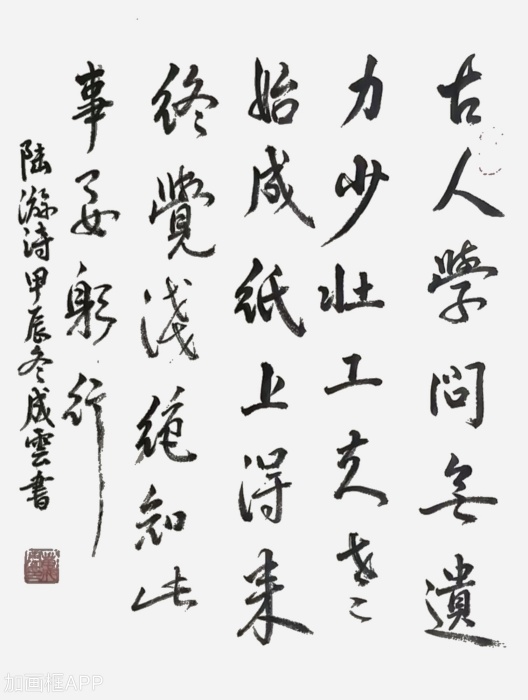 古人學問無遺
力少壯工夫老
始成紙上得来
終覺淺絕知此
事要躬行
陸游詩甲辰冬成雲書
加画框APP